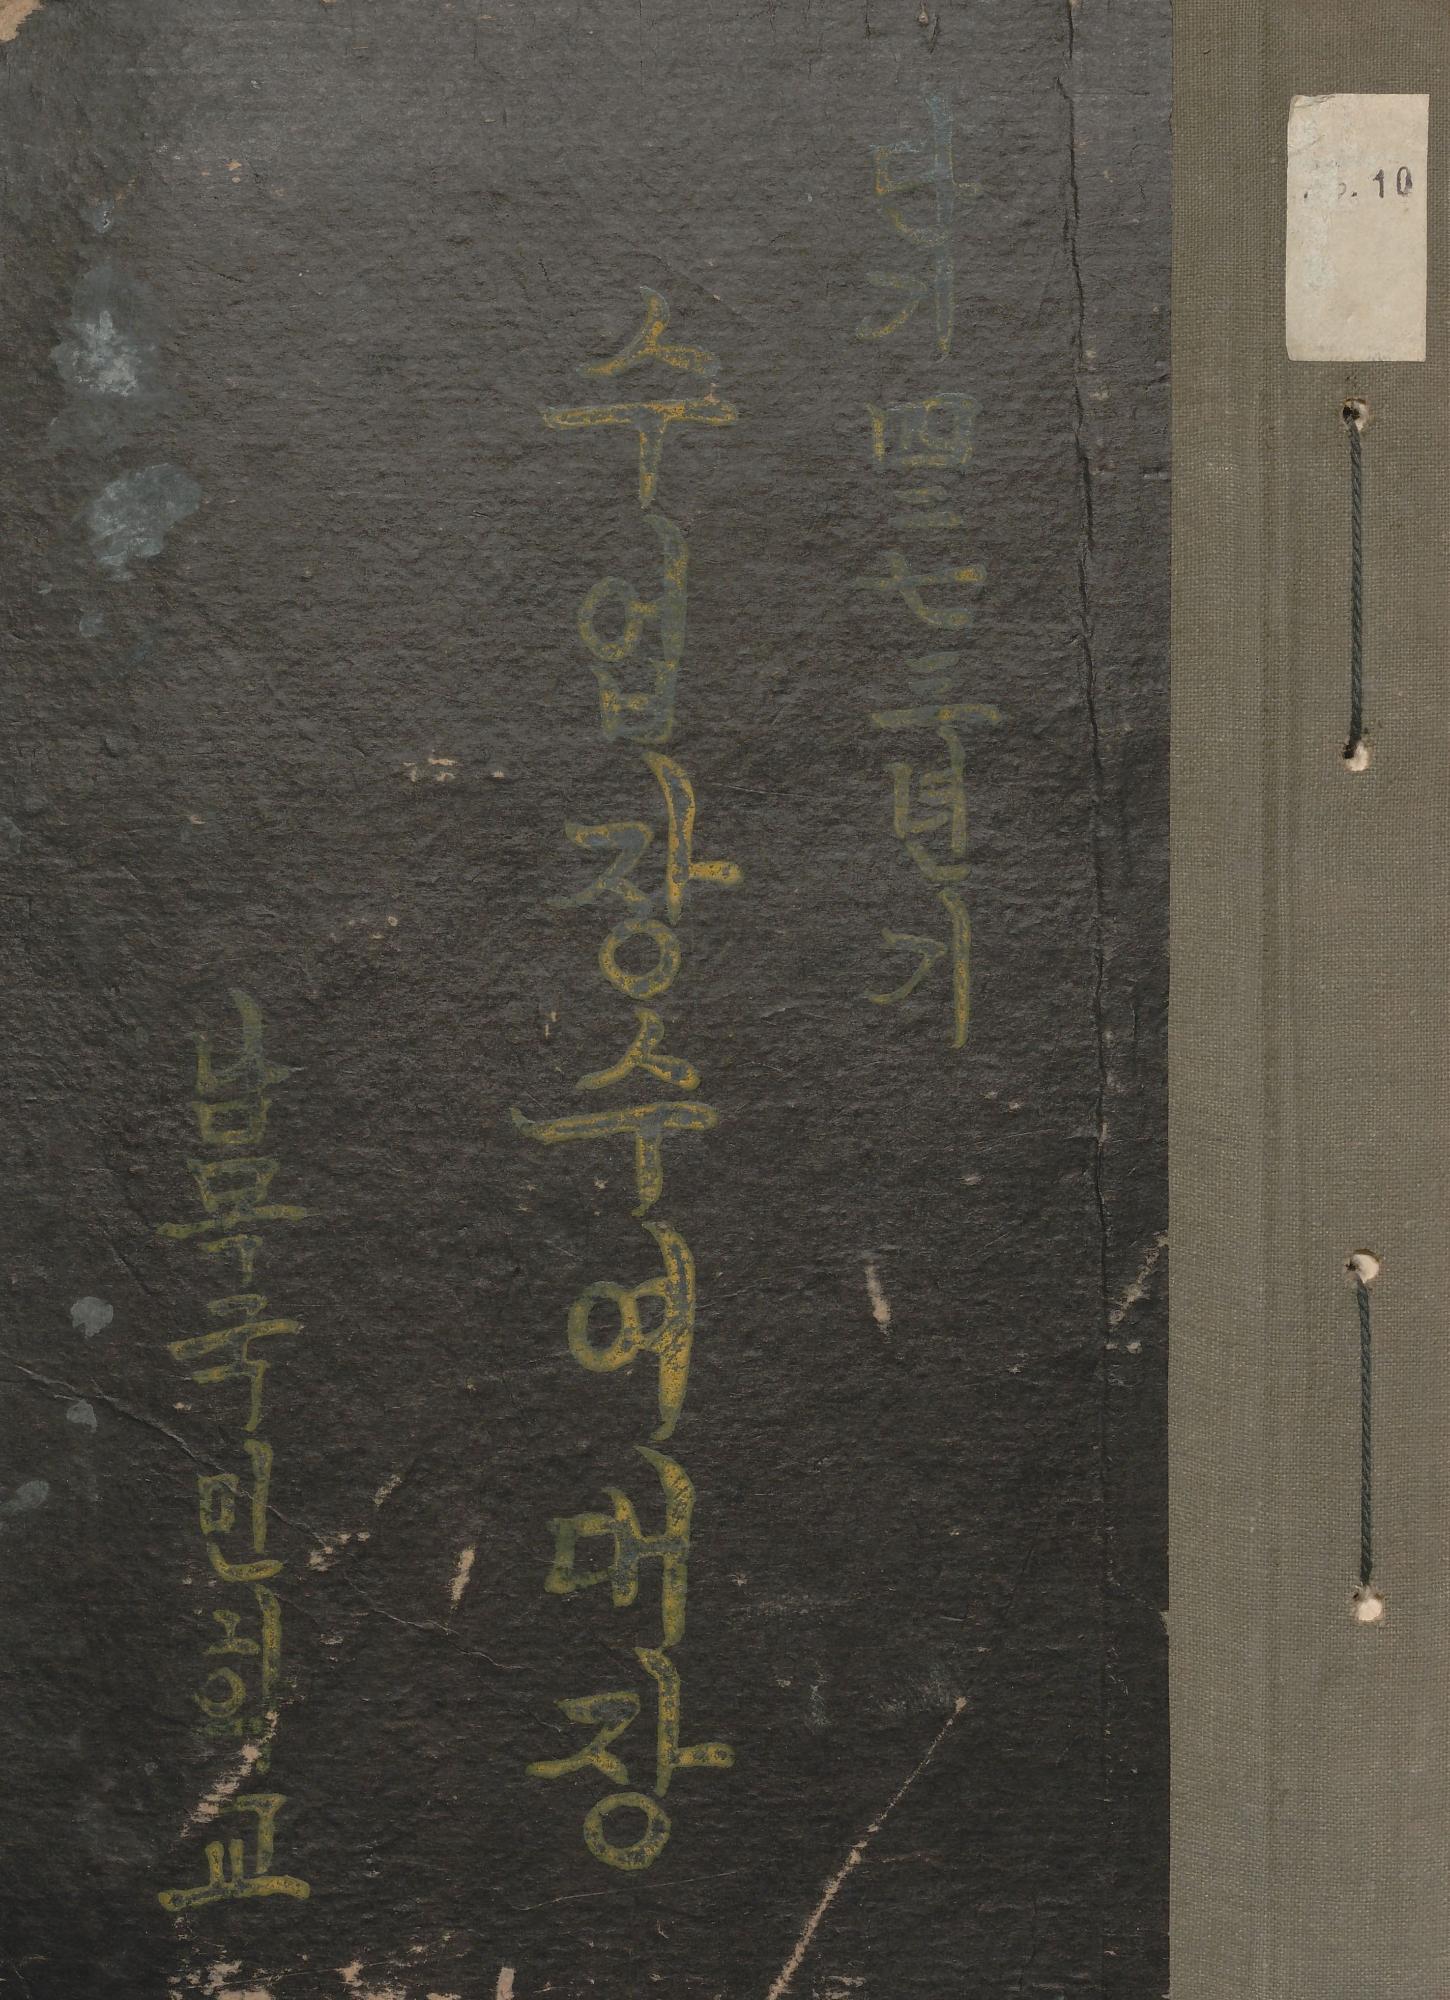 단기 四二七三년기
수업장수여대장
남목국민학교
10